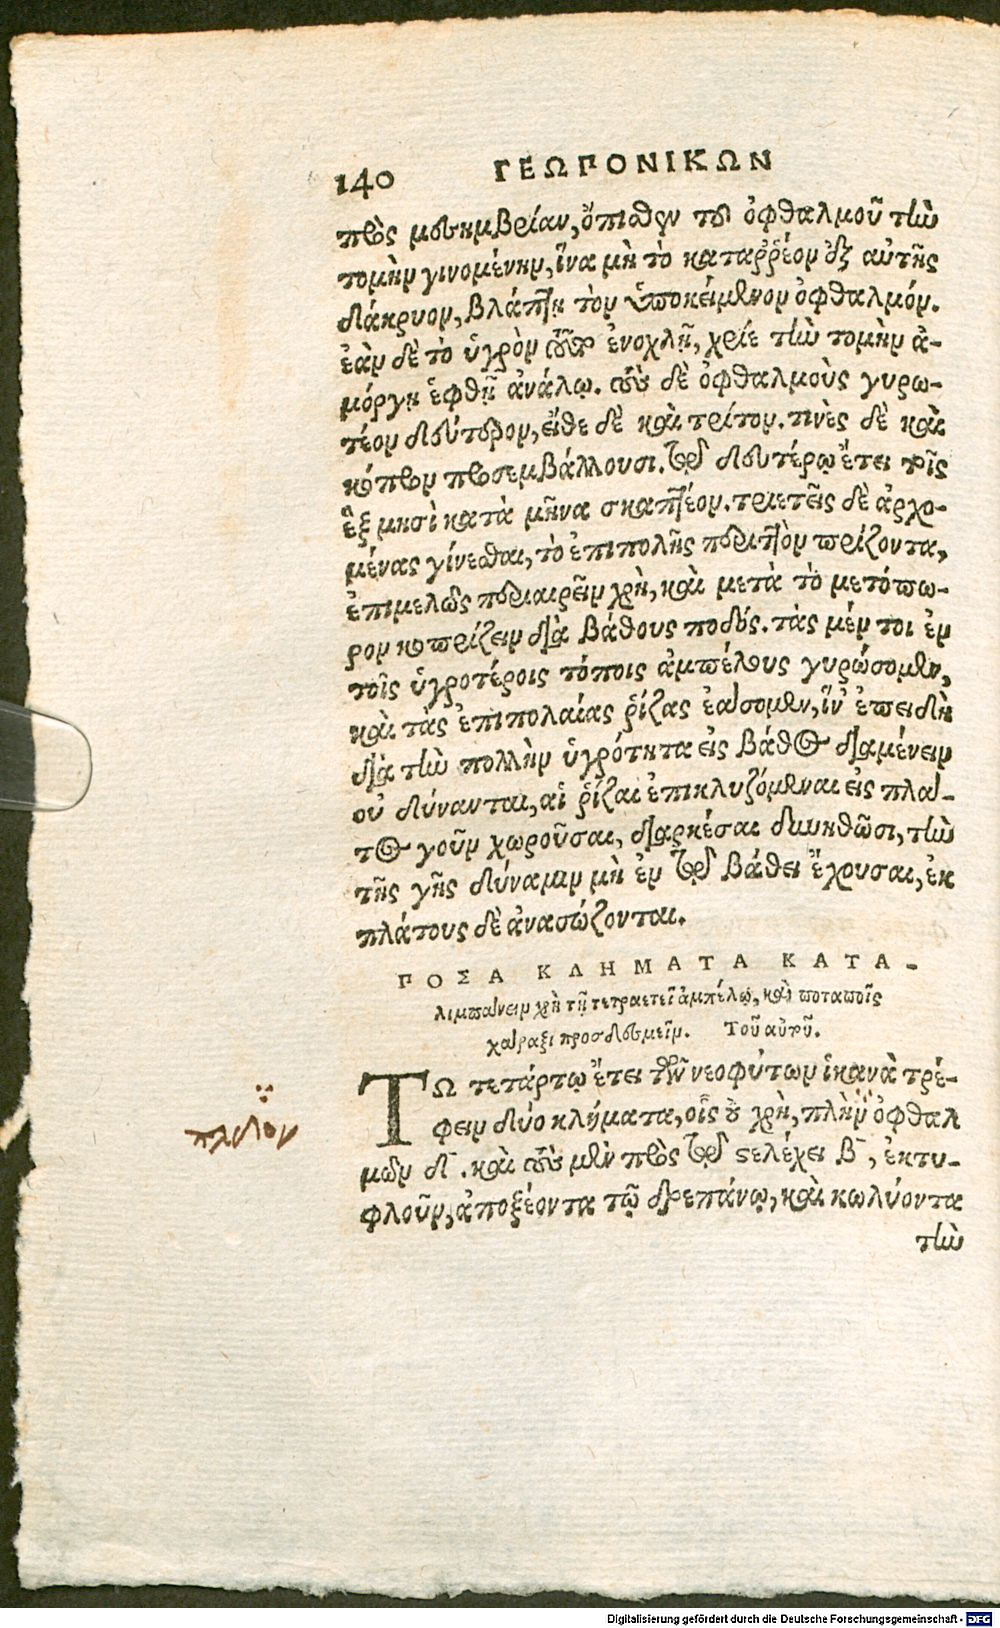 140 ΓΕΩΠΟΝΙΚΩΝ
πρὸς μεσημβρίαν, ὄπισθεν τοῦ ὀφθαλμοῦ τὴν
τομὴν γινομένην, ἵνα μὴ τὸ καταῤῥέον ἐξ αὐτῆς
δάκρυον, βλάπτῃ τὸν ὑποκείμενον ὀφθαλμόν.
ἐὰν δὲ τὸ ὑγρὸν τοῦτο ἐνοχλῇ, χρίε τὴν τομὴν ἀ-
μόργῃ ἑφθῇ ἀνάλῳ. τοὺς δὲ ὀφθαλμοὺς γυρω-
τέον δεύτερον, εἶθε δὲ καὶ τρίτον. τινὲς δὲ καὶ
κόπρον προσεμβάλλουσι. τῷ δευτέρῳ ἔτει τοῖς
ἓξ μησὶ κατὰ μῆνα σκαπτέον. τριετεῖς δὲ ἀρχο-
μένας γίνεσθαι, τὸ ἐπιπολῆς περιττὸν ῥιζοντα,
ἐπιμελῶς περιαιρεῖν χρὴ, καὶ μετὰ τὸ μετόπω-
ρον κοπρίζειν διὰ βάθους ποδός. τὰς μέν τοι ἐν
τοῖς ὑγροτέροις τόποις ἀμπέλους γυρώσομεν,
καὶ τὰς ἐπιπολαίας ῥίζας ἐάσομεν, ἵν' ἐπειδὴ
διὰ τὴν πολλὴν ὑγρότητα εἰς βάθος διαμένειν
οὐ δύνανται, αἱ ῥίζαι ἐπικλυζόμεναι εἰς πλά-
τος γοῦν χωροῦσαι, διαρκέσαι δυνηθῶσι, τὴν
τῆς γῆς δύναμιν μὴ ἐν τῷ βάθει ἔχουσαι, ἐκ
πλάτους δὲ ἀνασώζονται.
ΠΟΣΑ ΚΛΗΜΑΤΑ ΚΑΤΑ-
λιμπάνειν χρὴ τῇ τετραετεῖ ἀμπέλῳ, καὶ ποταποῖς
χάραξι προσδεσμεῖν. Τοῦ αὐτοῦ.
ΤΩ τετάρτῳ ἔτει τῶν νεοφύτων ἱκανὰ τρέ-
φειν δύο κλήματα, οἷς οὐ χρὴ, πλὴν ὀφθαλ
μῶν δ'. καὶ τοὺς μὲν πρὸς τῷ στελέχει β', ἐκτυ-
φλοῦν, ἀποξέοντα τῷ δρεπάνῳ, καὶ κωλύοντα
τὴν